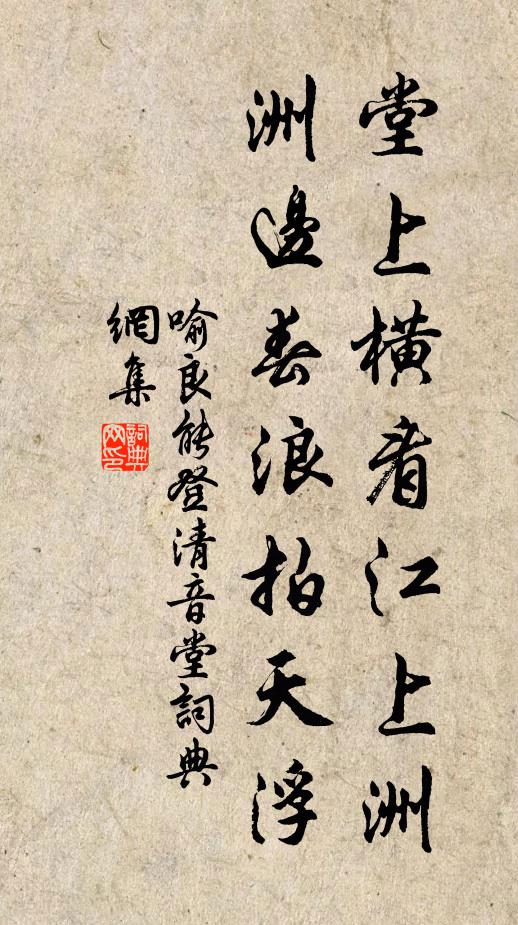 堂上橫看江上洲
洲邊春浪拍天浮
喻良能登清音堂詞典
網集
詞典
网印